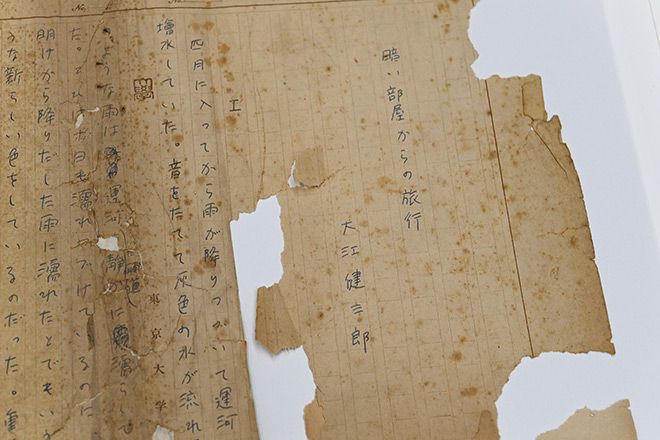 暗い部屋からの旅行
大江健三郎
I
四月に入ってから雨が降りつづいて運河
増水していた。音をたてて灰色の水が流れ
東京大学
ような雨は 運河 静かに 濡らして
た。 も濡れつづけているのに
明けから降りだした雨に濡れたとでもいう
うな新らしい色をしているのだった。
No.
No.